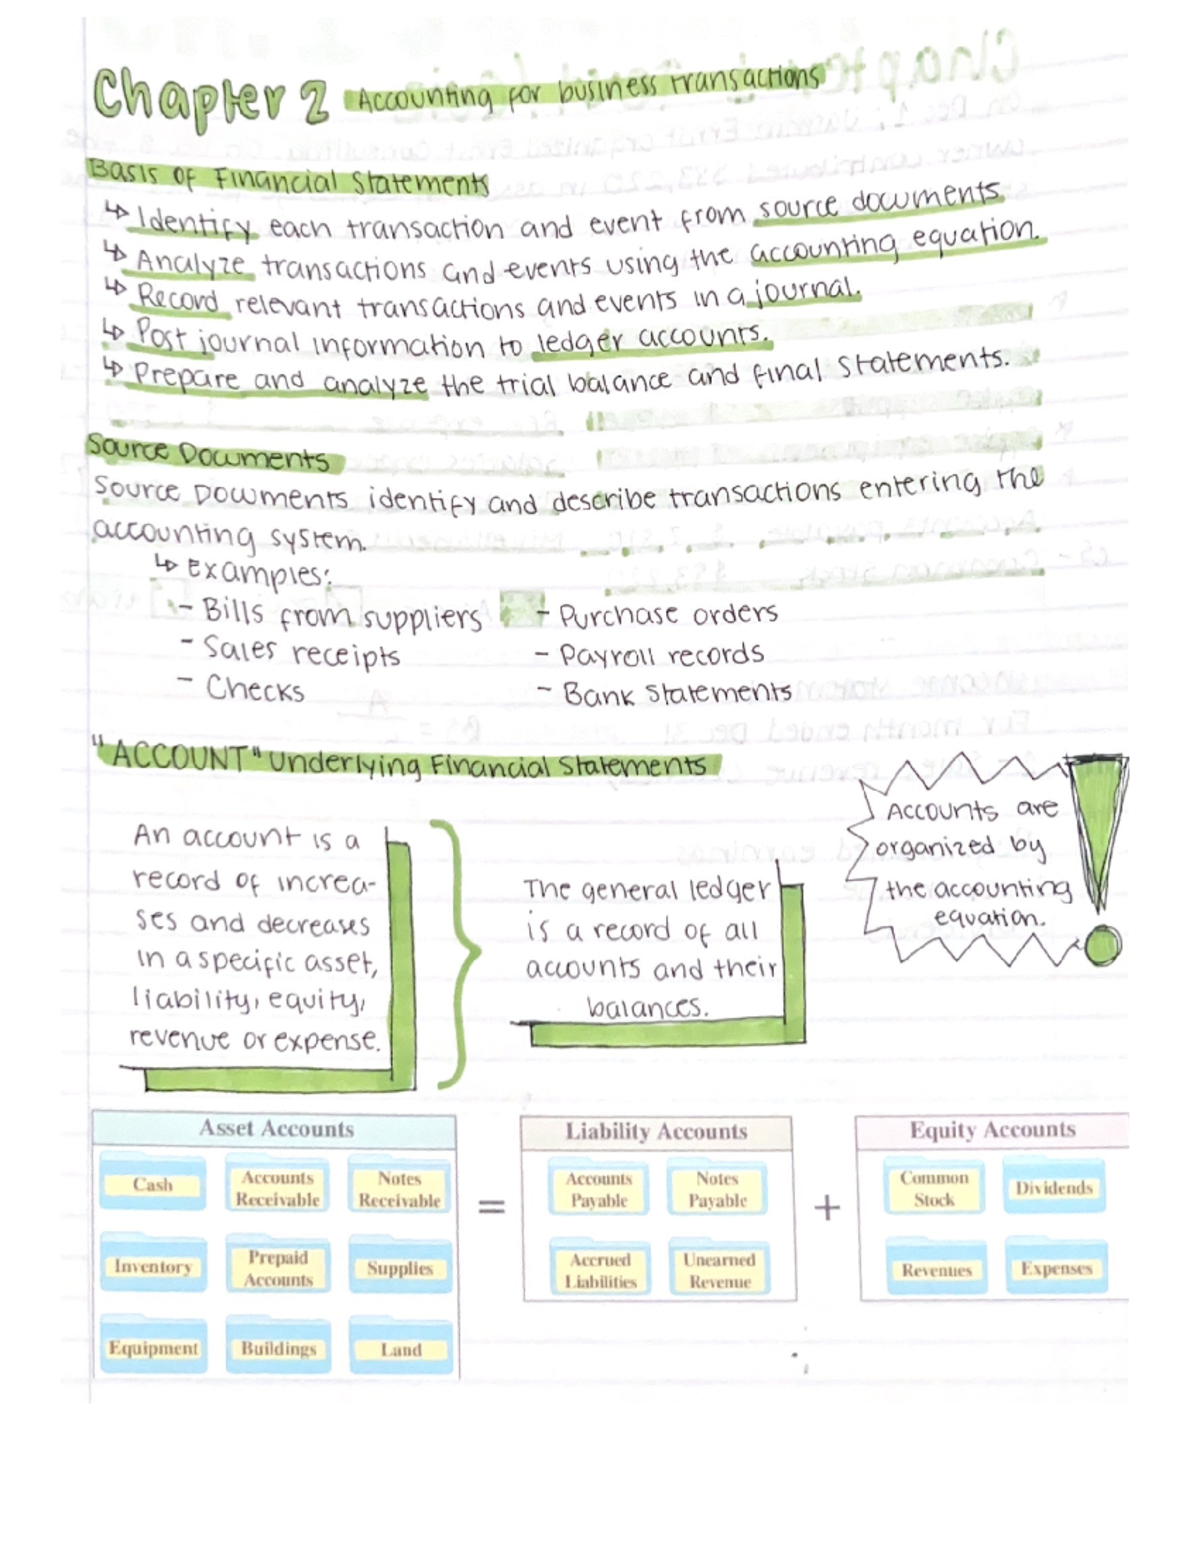 Chapter 2 Accounting for business transactions
Basis of Financial Statements
↳ Identify each transaction and event from source documents.
↳ Analyze transactions and events using the accounting equation.
↳ Record relevant transactions and events in a journal.
↳ Post journal information to ledger accounts.
↳ Prepare and analyze the trial balance and final statements.
Source Documents
Source Documents identify and describe transactions entering the
accounting system.
↳ Examples:
- Bills from suppliers - Purchase orders
- Sales receipts - Payroll records
- Checks - Bank Statements
"ACCOUNT" Underlying Financial Statements
An account is a
record of increa-
ses and decreases
in a specific asset,
liability, equity,
revenue or expense.
The general ledger
is a record of all
accounts and their
balances.
Accounts are
organized by
the accounting
equation.
Asset Accounts
Cash Accounts Receivable Notes Receivable
Inventory Prepaid Accounts Supplies
Equipment Buildings Land
=
Liability Accounts
Accounts Payable Notes Payable
Accrued Liabilities Unearned Revenue
+
Equity Accounts
Common Stock Dividends
Revenues Expenses